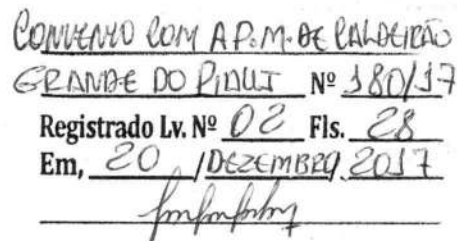 CONVENIO COM A P.M. DE CALDEIRÃO
GRANDE DO PIAUI Nº 180/17
Registrado Lv. Nº 02 Fls. 28
Em, 20 / DEZEMBRO 2017